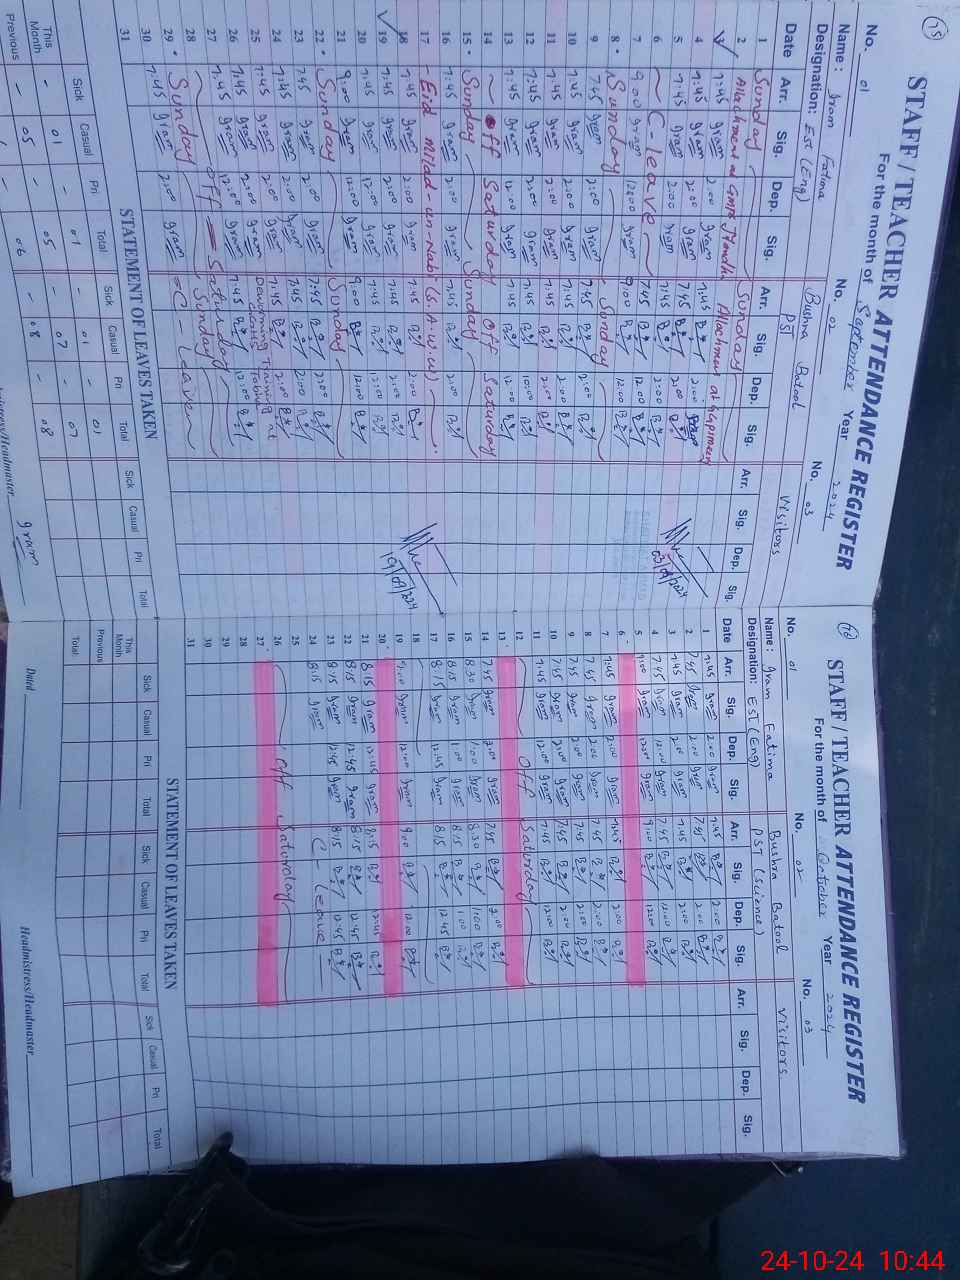 75
STAFF / TEACHER ATTENDANCE REGISTER
For the month of September Year 2024
No. 01 No. 02 No. 03
Name: gram Fatima Bushra Batool Visitors
Designation: EST (Eng) PST
Date Arr. Sig. Dep. Sig. Arr. Sig. Dep. Sig. Arr. Sig. Dep. Sig.
1 Sunday Sunday
2 Allachment at Gmps Allachment at
7:45 gram 2:00 gram 7:45 2:00
4 7:45 gram 2:00 gram 7:45 2:00
5 7:45 gram 2:00 gram 7:45 2:00 03/09/2024
6 C-leave 7:45 12:00
7 9:00 gram 12:00 gram 9:00 12:00
8 Sunday Sunday
9 7:45 gram 2:00 gram 7:45 2:00
10 7:45 gram 2:00 gram 7:45 2:00
11 7:45 gram 2:00 gram 7:45 2:00
12 7:45 gram 2:00 gram 7:45
13 7:45 gram 12:00 gram 7:45 12:00
14 off Saturday off Saturday
15 Sunday Sunday
16 7:45 gram 2:00 gram 7:45 2:00
17 Eid Milad-un-Nabi (S.A.W.W)
18 7:45 gram 2:00 gram 7:45 2:00
19 7:45 gram 2:00 gram 7:45 2:00 19/09/2024
20 7:45 gram 12:00 gram 7:45 12:00
21 9:00 gram 12:00 gram 9:00 12:00
22 Sunday Sunday
23 7:45 gram 2:00 gram 7:45 2:00
24 7:45 gram 2:00 gram 7:45 2:00
25 7:45 gram 2:00 gram 7:45 2:00
26 7:45 gram 2:00 gram Deworming Training at
27 7:45 gram 12:00 gram 7:45 12:00
28 off Saturday
29 Sunday Sunday
30 7:45 gram 2:00 gram C-Leave
31
STATEMENT OF LEAVES TAKEN
Sick Casual Pri Total Sick Casual Pri Total Sick Casual Pri Total
This Month - 01 - 01 - 01 - 01
Previous - 05 - 05 - 07 - 07
06 08 - 08
Headmistress/Headmaster gram
76
STAFF / TEACHER ATTENDANCE REGISTER
For the month of October Year 2024
No. 01 No. 02 No. 03
Name: gram Fatima Bushra Batool Visitors
Designation: EST (Eng) PST (Science)
Date Arr. Sig. Dep. Sig. Arr. Sig. Dep. Sig. Arr. Sig. Dep. Sig.
1 7:45 gram 2:00 gram 7:45 2:00
2 7:45 gram 2:00 gram 7:45 2:00
3 7:45 gram 2:00 gram 7:45 2:00
4 7:45 gram 12:00 gram 7:45 12:00
5 9:00 gram 12:00 gram 9:00 12:00
6
7 7:45 gram 2:00 gram 7:45 2:00
8 7:45 gram 2:00 gram 7:45 2:00
9 7:45 gram 2:00 gram 7:45 2:00
10 7:45 gram 2:00 gram 7:45 2:00
11 7:45 gram 12:00 gram 7:45 12:00
12 off Saturday
13
14 7:45 gram 2:00 gram 7:45 2:00
15 8:30 gram 1:00 gram 8:30 1:00
16 8:15 gram 1:00 gram 8:15 1:00
17 8:15 gram 12:45 gram 8:15 12:45
18
19 9:00 gram 12:00 gram 9:00 12:00
20
21 8:15 gram 12:45 gram 8:15 12:45
22 8:15 gram 12:45 gram 8:15 12:45
23 8:15 gram 12:45 gram 8:15 12:45
24 8:15 gram C Leave
25
26 off Saturday
27
28
29
30
31
STATEMENT OF LEAVES TAKEN
Sick Casual Pri Total Sick Casual Pri Total Sick Casual Pri Total
This Month
Previous
Total:
Dated Headmistress/Headmaster
24-10-24 10:44